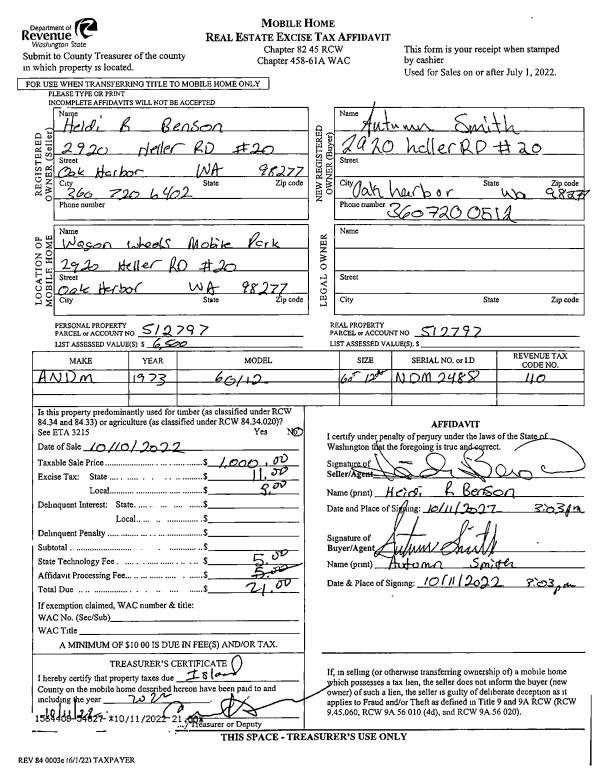 Department of
Revenue
Washington State
Submit to County Treasurer of the county
in which property is located.
MOBILE HOME
REAL ESTATE EXCISE TAX AFFIDAVIT
Chapter 82 45 RCW
Chapter 458-61A WAC
This form is your receipt when stamped
by cashier
Used for Sales on or after July 1, 2022.
FOR USE WHEN TRANSFERRING TITLE TO MOBILE HOME ONLY
PLEASE TYPE OR PRINT
INCOMPLETE AFFIDAVITS WILL NOT BE ACCEPTED
REGISTERED OWNER (Seller)
Name
Heidi R Benson
2920 Heller RD #20
Street
Oak Harbor WA 98277
City State Zip code
360 720 6402
Phone number
NEW REGISTERED OWNER (Buyer)
Name
Autumn Smith
2920 heller RD #20
Street
Oak harbor Wa 98277
City State Zip code
Phone number 360 720 0512
LOCATION OF MOBILE HOME
Name
Wagon Wheels Mobile Park
2920 Heller RD #20
Street
Oak Harbor WA 98277
City State Zip code
LEGAL OWNER
Name
Street
City State Zip code
PERSONAL PROPERTY
PARCEL or ACCOUNT NO. 512797
LIST ASSESSED VALUE(S) $ 6,500
REAL PROPERTY
PARCEL or ACCOUNT NO 512797
LIST ASSESSED VALUE(S) $
MAKE YEAR MODEL SIZE SERIAL NO. or I.D REVENUE TAX CODE NO.
ANDM 1973 60/12 60 12 NDM2488 110
Is this property predominantly used for timber (as classified under RCW
84.34 and 84.33) or agriculture (as classified under RCW 84.34.020)?
See ETA 3215 Yes No
Date of Sale 10/10/2022
Taxable Sale Price $ 1,000.00
Excise Tax: State $ 11.00
Local $ 5.00
Delinquent Interest: State $
Local $
Delinquent Penalty $
Subtotal $
State Technology Fee $ 5.00
Affidavit Processing Fee $ 5.00
Total Due $ 21.00
If exemption claimed, WAC number & title:
WAC No. (Sec/Sub)
WAC Title
A MINIMUM OF $10 00 IS DUE IN FEE(S) AND/OR TAX.
AFFIDAVIT
I certify under penalty of perjury under the laws of the State of
Washington that the foregoing is true and correct.
Signature of
Seller/Agent
Name (print) Heidi R Benson
Date and Place of Signing: 10/11/2022 3:03pm
Signature of
Buyer/Agent Autumn Smith
Name (print) Autumn Smith
Date & Place of Signing: 10/11/2022 3:03pm
TREASURER'S CERTIFICATE
I hereby certify that property taxes due Island
County on the mobile home described hereon have been paid to and
including the year 2022
10/11/22
10/11/2022 21.00
Treasurer or Deputy
If, in selling (or otherwise transferring ownership of) a mobile home
which possesses a tax lien, the seller does not inform the buyer (new
owner) of such a lien, the seller is guilty of deliberate deception as it
applies to Fraud and/or Theft as defined in Title 9 and 9A RCW (RCW
9.45.060, RCW 9A.56 010 (4d), and RCW 9A 56 020).
THIS SPACE - TREASURER'S USE ONLY
REV 84 0003e (6/1/22) TAXPAYER